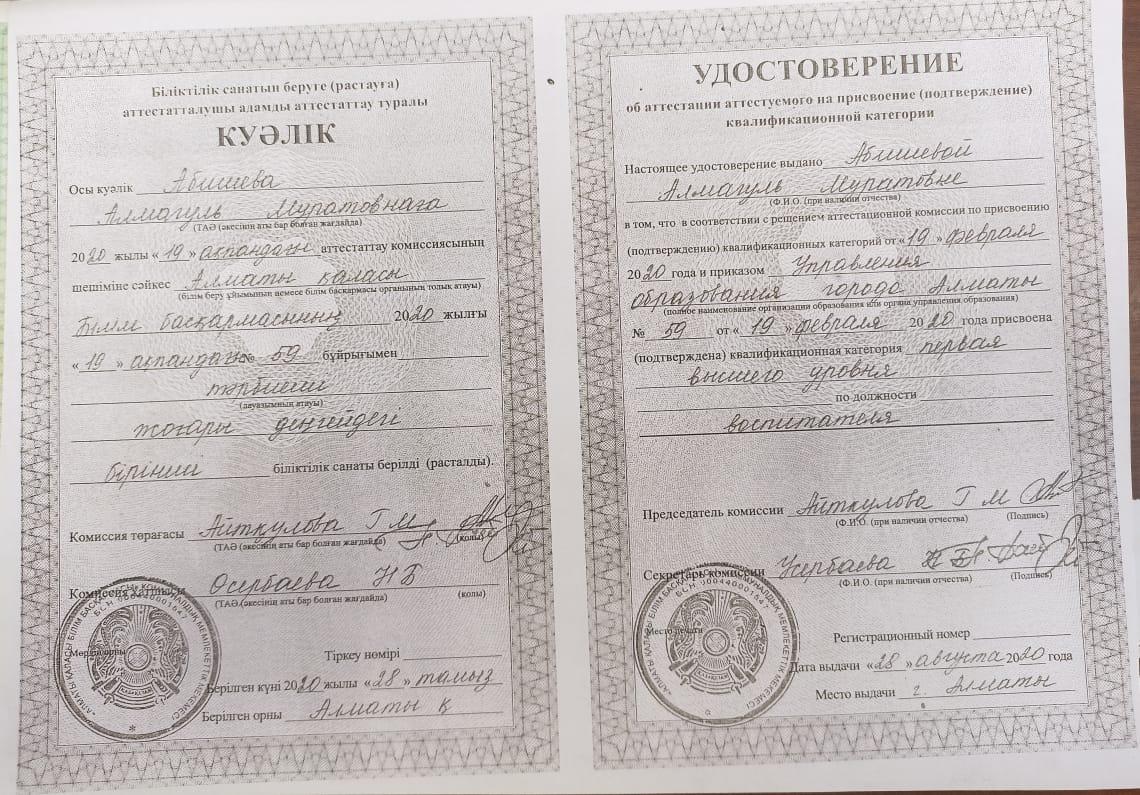 Біліктілік санатын беруге (растауға)
аттестатталушы адамды аттестаттау туралы
КУӘЛІК
Осы куәлік Абишева
Алмагуль Муратовнаға
(ТАӘ (әкесінің аты бар болған жағдайда)
2020 жылы «19» ақпандағы аттестаттау комиссиясының
шешіміне сәйкес Алматы қаласы
(білім беру ұйымының немесе білім басқармасы органының толық атауы)
Білім басқармасының 2020 жылғы
«19» ақпандағы № 59 бұйрығымен
тәрбиеші
(лауазымның атауы)
жоғары деңгейдегі
бірінші біліктілік санаты берілді (расталды).
Комиссия төрағасы Айткулова Г М
(ТАӘ (әкесінің аты бар болған жағдайда) (қолы)
Комиссия хатшысы Өсербаева Н Б
(ТАӘ (әкесінің аты бар болған жағдайда) (қолы)
Мөрдің орны
Тіркеу нөмірі
Берілген күні 2020 жылы «28» тамыз
Берілген орны Алматы қ
УДОСТОВЕРЕНИЕ
об аттестации аттестуемого на присвоение (подтверждение)
квалификационной категории
Настоящее удостоверение выдано Абишевой
Алмагуль Муратовне
(Ф.И.О. (при наличии отчества)
в том, что в соответствии с решением аттестационной комиссии по присвоению
(подтверждению) квалификационных категорий от «19» февраля
2020 года и приказом Управления
образования города Алматы
(полное наименование организации образования или органа управления образования)
№ 59 от «19» февраля 2020 года присвоена
(подтверждена) квалификационная категория первая
высшего уровня
по должности
воспитателя
Председатель комиссии Айткулова Г М
(Ф.И.О. (при наличии отчества) (Подпись)
Секретарь комиссии Усербаева Н Б
(Ф.И.О. (при наличии отчества) (Подпись)
Место печати
Регистрационный номер
Дата выдачи «28» августа 2020 года
Место выдачи г. Алматы